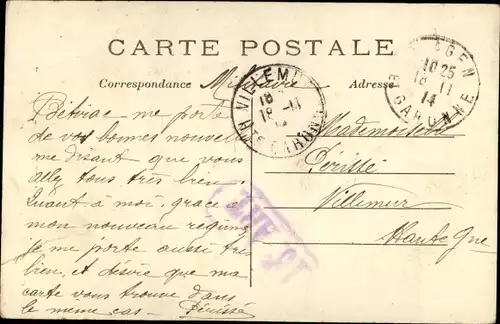 CARTE POSTALE
Correspondance Militaire Adresse
Bétirac me porte
de vos bonnes nouvelles
me disant que vous
allez tous très bien.
Quant à moi, grace à
mon nouveau régime
je me porte aussi très
bien, et désire que ma
carte vous trouve dans
le même cas. Périssé
VILLEMUR
18
18 -11
Hte GARONNE
AGEN
10 25
18 - 11
14
GARONNE
Mademoiselle
Périssé
Villemur
Haute Gne